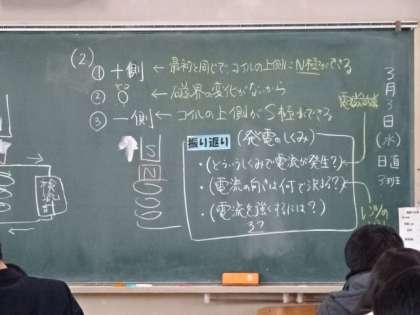 (2)
① +側 ← 最初と同じで、コイルの上側にN極ができる
② 0 ← 磁界の変化がないから
③ 一側 ← コイルの上側がS極ができる
S
N
検流計
振り返り (発電のしくみ)
・(どういうしくみで電流が発生?)
・(電流の向きは何で決まる?)
・(電流を強くするには?)
3つ
電磁誘導
3月3日(水)
日直
3班